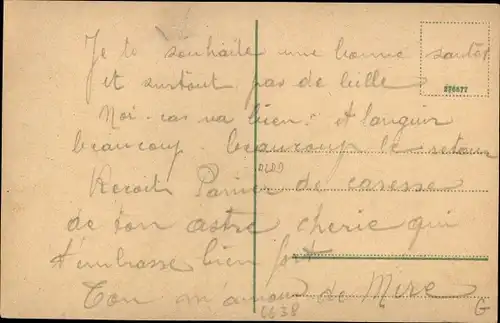 Je te souhaite une bonne santé
et surtout pas de bille
276677
Moi va bien et languir
beaucoup beaucoup le retour
Recoit Panier de caresse
de ton astre cherie qui
t'embrasse bien fort
Ton de Mire
6638
G